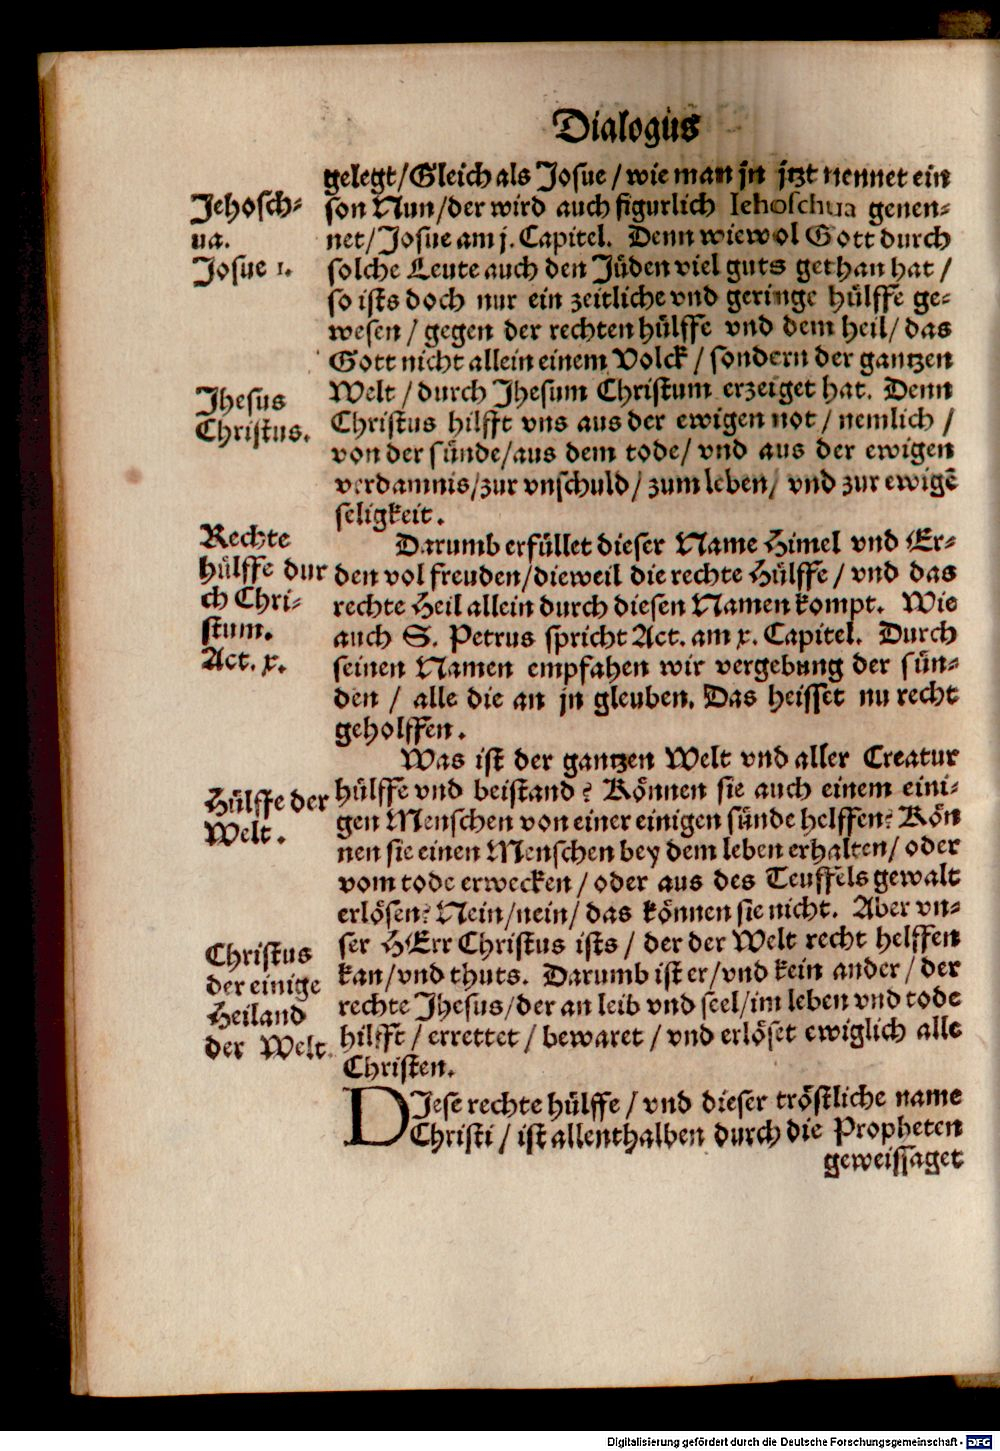 Dialogus
gelegt/Gleich als Josue/wie man jn jtzt nennet ein
son Nun/der wird auch figurlich Iehoschua genen-
net/Josue am j. Capitel. Denn wiewol Gott durch
solche Leute auch den Jüden viel guts gethan hat/
so ists doch nur ein zeitliche vnd geringe hülffe ge-
wesen/gegen der rechten hülffe vnd dem heil/das
Gott nicht allein einem Volck/sondern der gantzen
Welt/durch Jhesum Christum erzeiget hat. Denn
Christus hilfft vns aus der ewigen not/nemlich/
von der sünde/aus dem tode/vnd aus der ewigen
verdamnis/zur vnschuld/zum leben/vnd zur ewigē
seligkeit.
Darumb erfüllet dieser Name Himel vnd Er-
den vol freuden/dieweil die rechte Hülffe/vnd das
rechte Heil allein durch diesen Namen kompt. Wie
auch S. Petrus spricht Act. am x. Capitel. Durch
seinen Namen empfahen wir vergebung der sün-
den/alle die an jn gleuben. Das heisset nu recht
geholffen.
Was ist der gantzen Welt vnd aller Creatur
hülffe vnd beistand? Können sie auch einem eini-
gen Menschen von einer einigen sünde helffen? Kön
nen sie einen Menschen bey dem leben erhalten/oder
vom tode erwecken/oder aus des Teuffels gewalt
erlösen? Nein/nein/das können sie nicht. Aber vn-
ser HErr Christus ists/der der Welt recht helffen
kan/vnd thuts. Darumb ist er/vnd kein ander/der
rechte Jhesus/der an leib vnd seel/im leben vnd tode
hilfft/errettet/bewaret/vnd erlöset ewiglich alle
Christen.
DJese rechte hülffe/vnd dieser tröstliche name
Christi/ist allenthalben durch die Propheten
geweissaget
Jehosch-
ua.
Josue 1.
Jhesus
Christus.
Rechte
hülffe dur
ch Chri-
stum.
Act. x.
Hülffe der
Welt.
Christus
der einige
Heiland
der Welt.
Digitalisierung gefördert durch die Deutsche Forschungsgemeinschaft - DFG